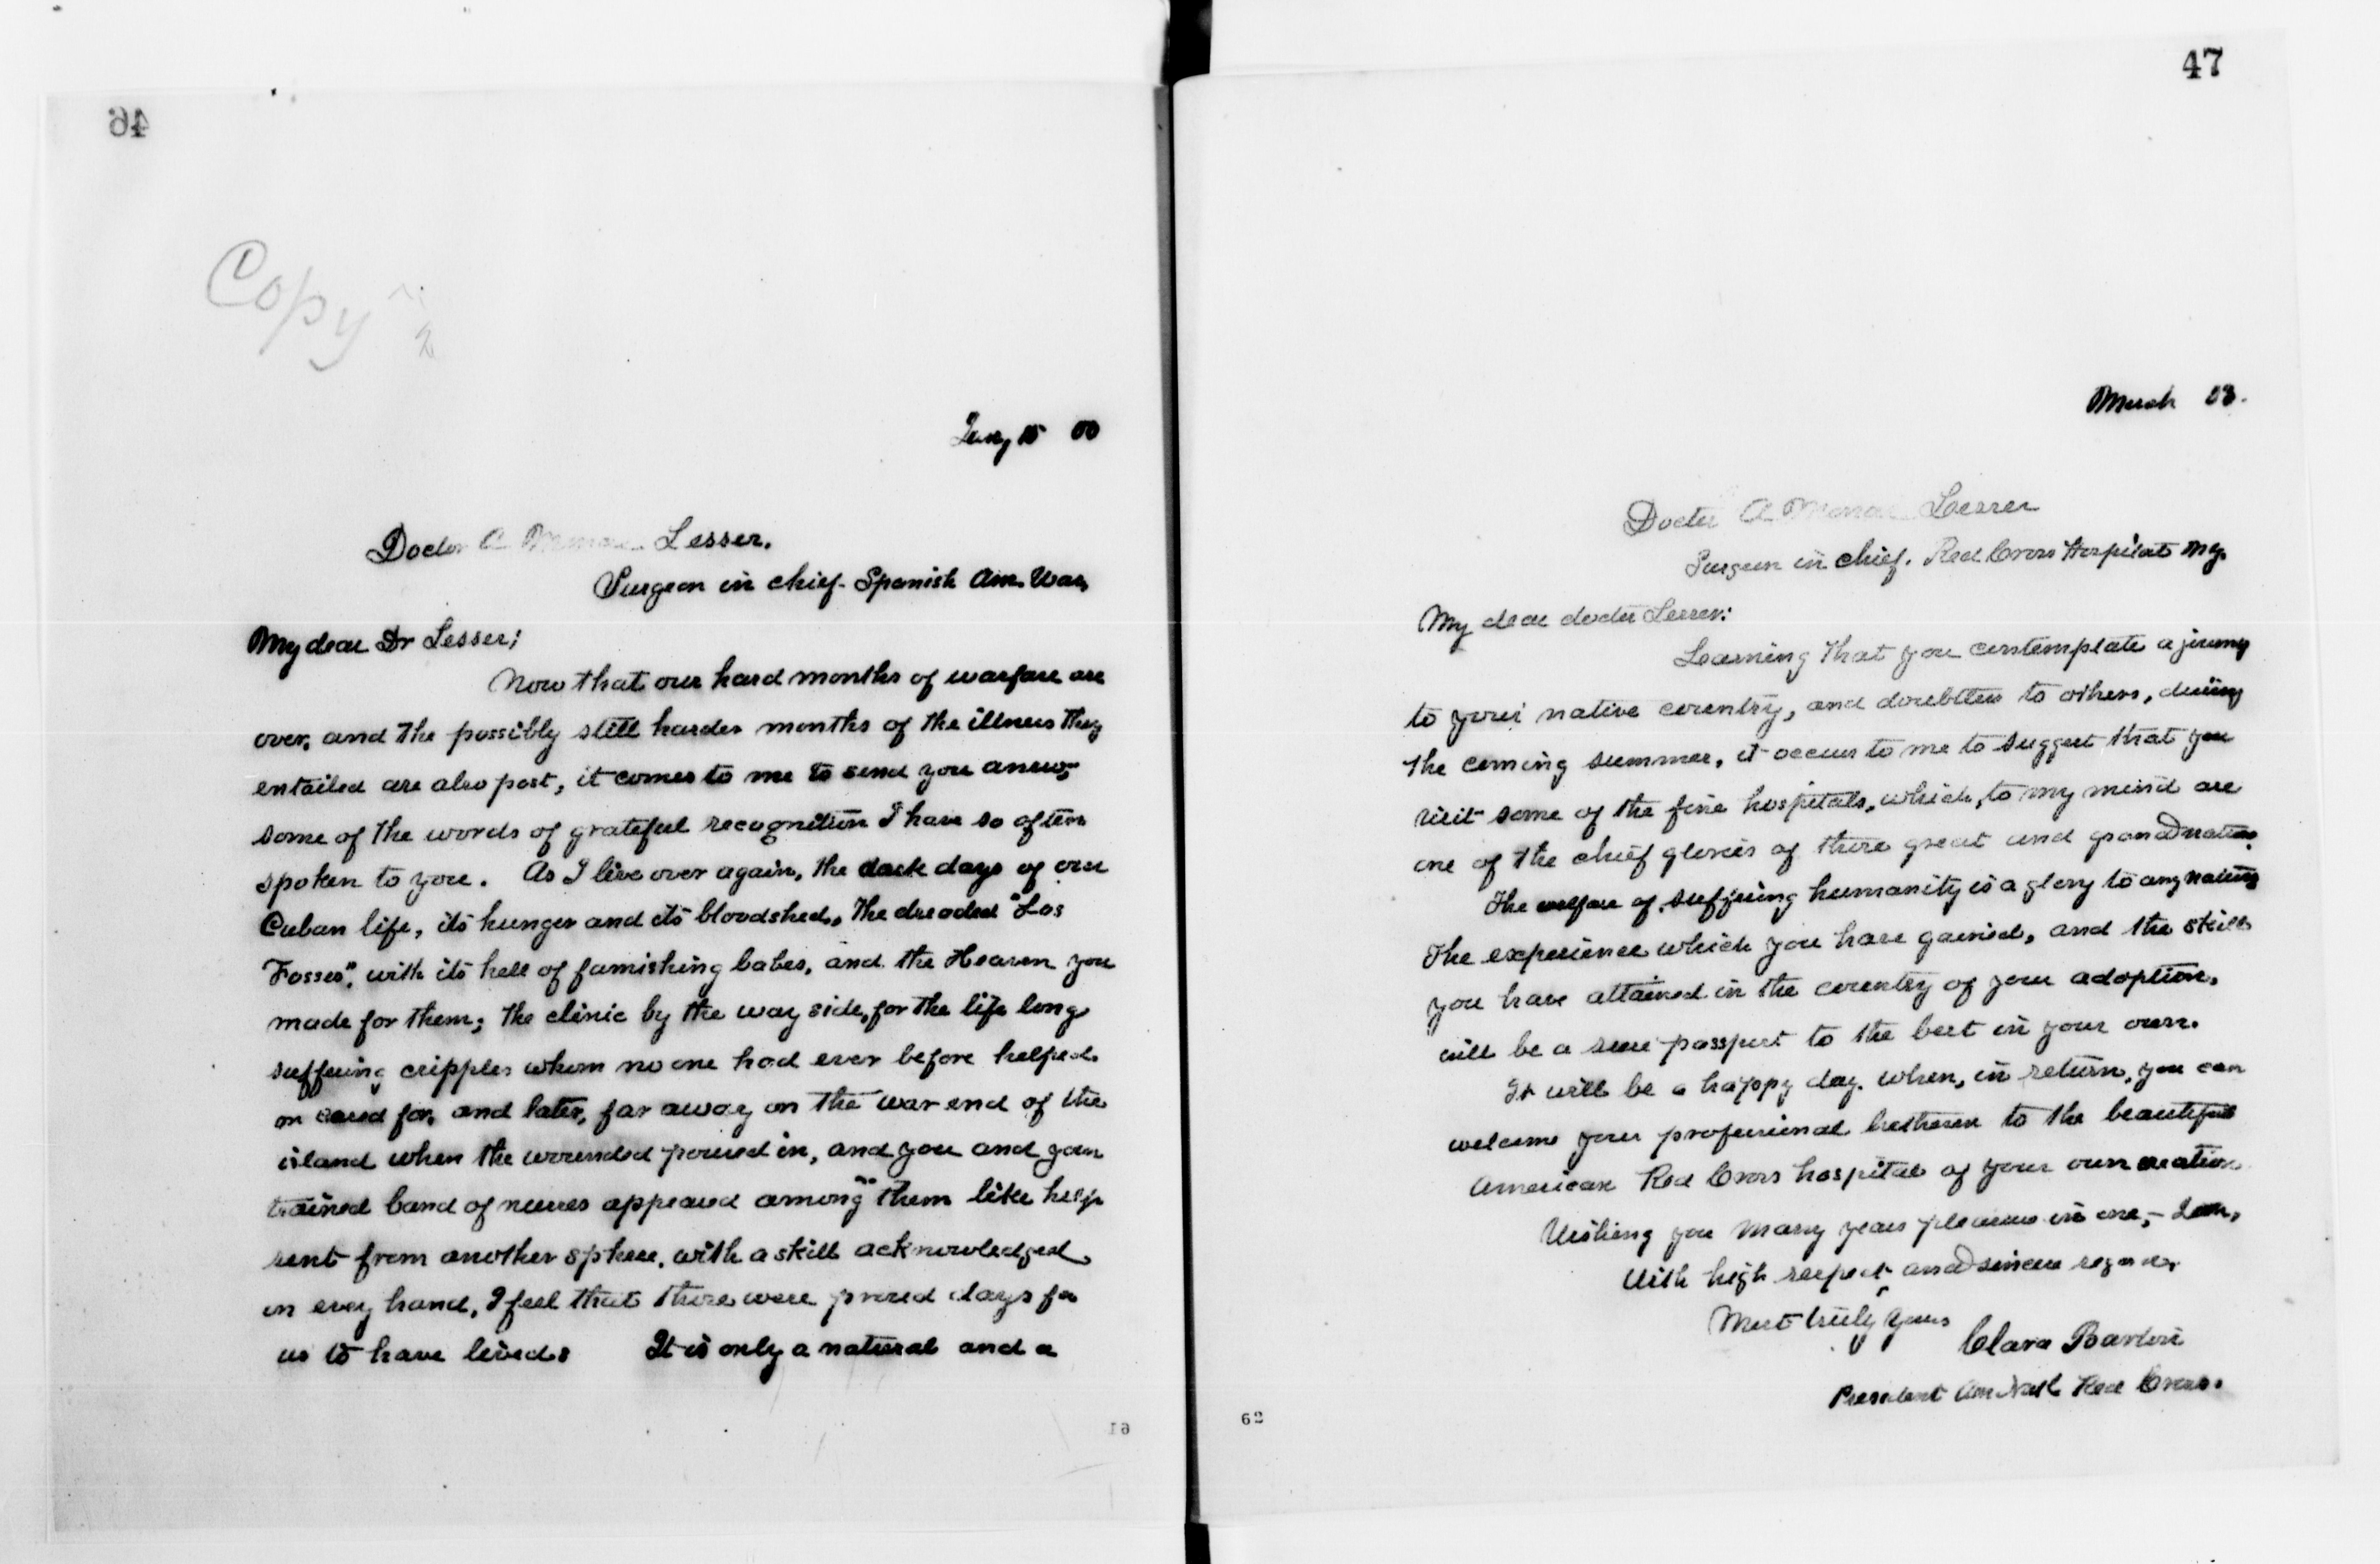 46
Copy
Jany 15 00
Doctor A Lesser.
Surgeon in chief. Spanish Am. War,
My dear Dr Lesser;
Now that our hard months of warfare are
over, and the possibly still harder months of the illness they
entailed are also past, it comes to me to send you anew,
some of the words of grateful recognition I have so often
spoken to you. As I live over again, the dark days of our
Cuban life, its hunger and its bloodshed, the dreaded "Los
Fosses", with its hell of famishing babes, and the Heaven you
made for them; the clinic by the way side, for the life long
suffering cripples whom no one had ever before helped
or cared for, and later, far away on the war end of the
island when the wounded poured in, and you and your
trained band of nurses appeared among them like help
sent from another sphere, with a skill acknowledged
on every hand, I feel that those were proud days for
us to have lived. It is only a natural and a
61
47
March 03.
Doctor A Lesser
Surgeon in chief. Red Cross Hospital NY.
My dear doctor Lesser:
Learning that you contemplate a journy
to your native country, and doubtless to others, during
the coming summer, it occurs to me to suggest that you
visit some of the fine hospitals, which, to my mind are
one of the chief glories of those great and grand nations.
The welfare of suffering humanity is a glory to any nation
The experience which you have gained, and the skill
you have attained in the country of your adoption,
will be a sure passport to the best in your own.
It will be a happy day. when, in return, you can
welcome your professional bretheren to the beautiful
American Red Cross hospital of your own creation
Wishing you many years pleasure in one, – I am,
With high respect and sincere regards,
Most truly yours
Clara Barton
President Am Natl Red Cross.
62